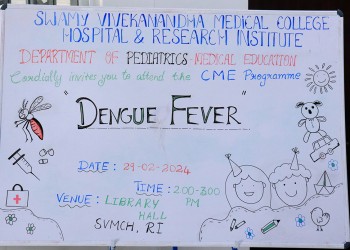 SWAMY VIVEKANANDHA MEDICAL COLLEGE
HOSPITAL & RESEARCH INSTITUTE
DEPARTMENT OF PEDIATRICS - MEDICAL EDUCATION
Cordially invites you to attend the CME Programme
"DENGUE FEVER"
DATE: 29-02-2024
TIME: 2:00-3:00 PM
VENUE: LIBRARY HALL
SVMCH, RI